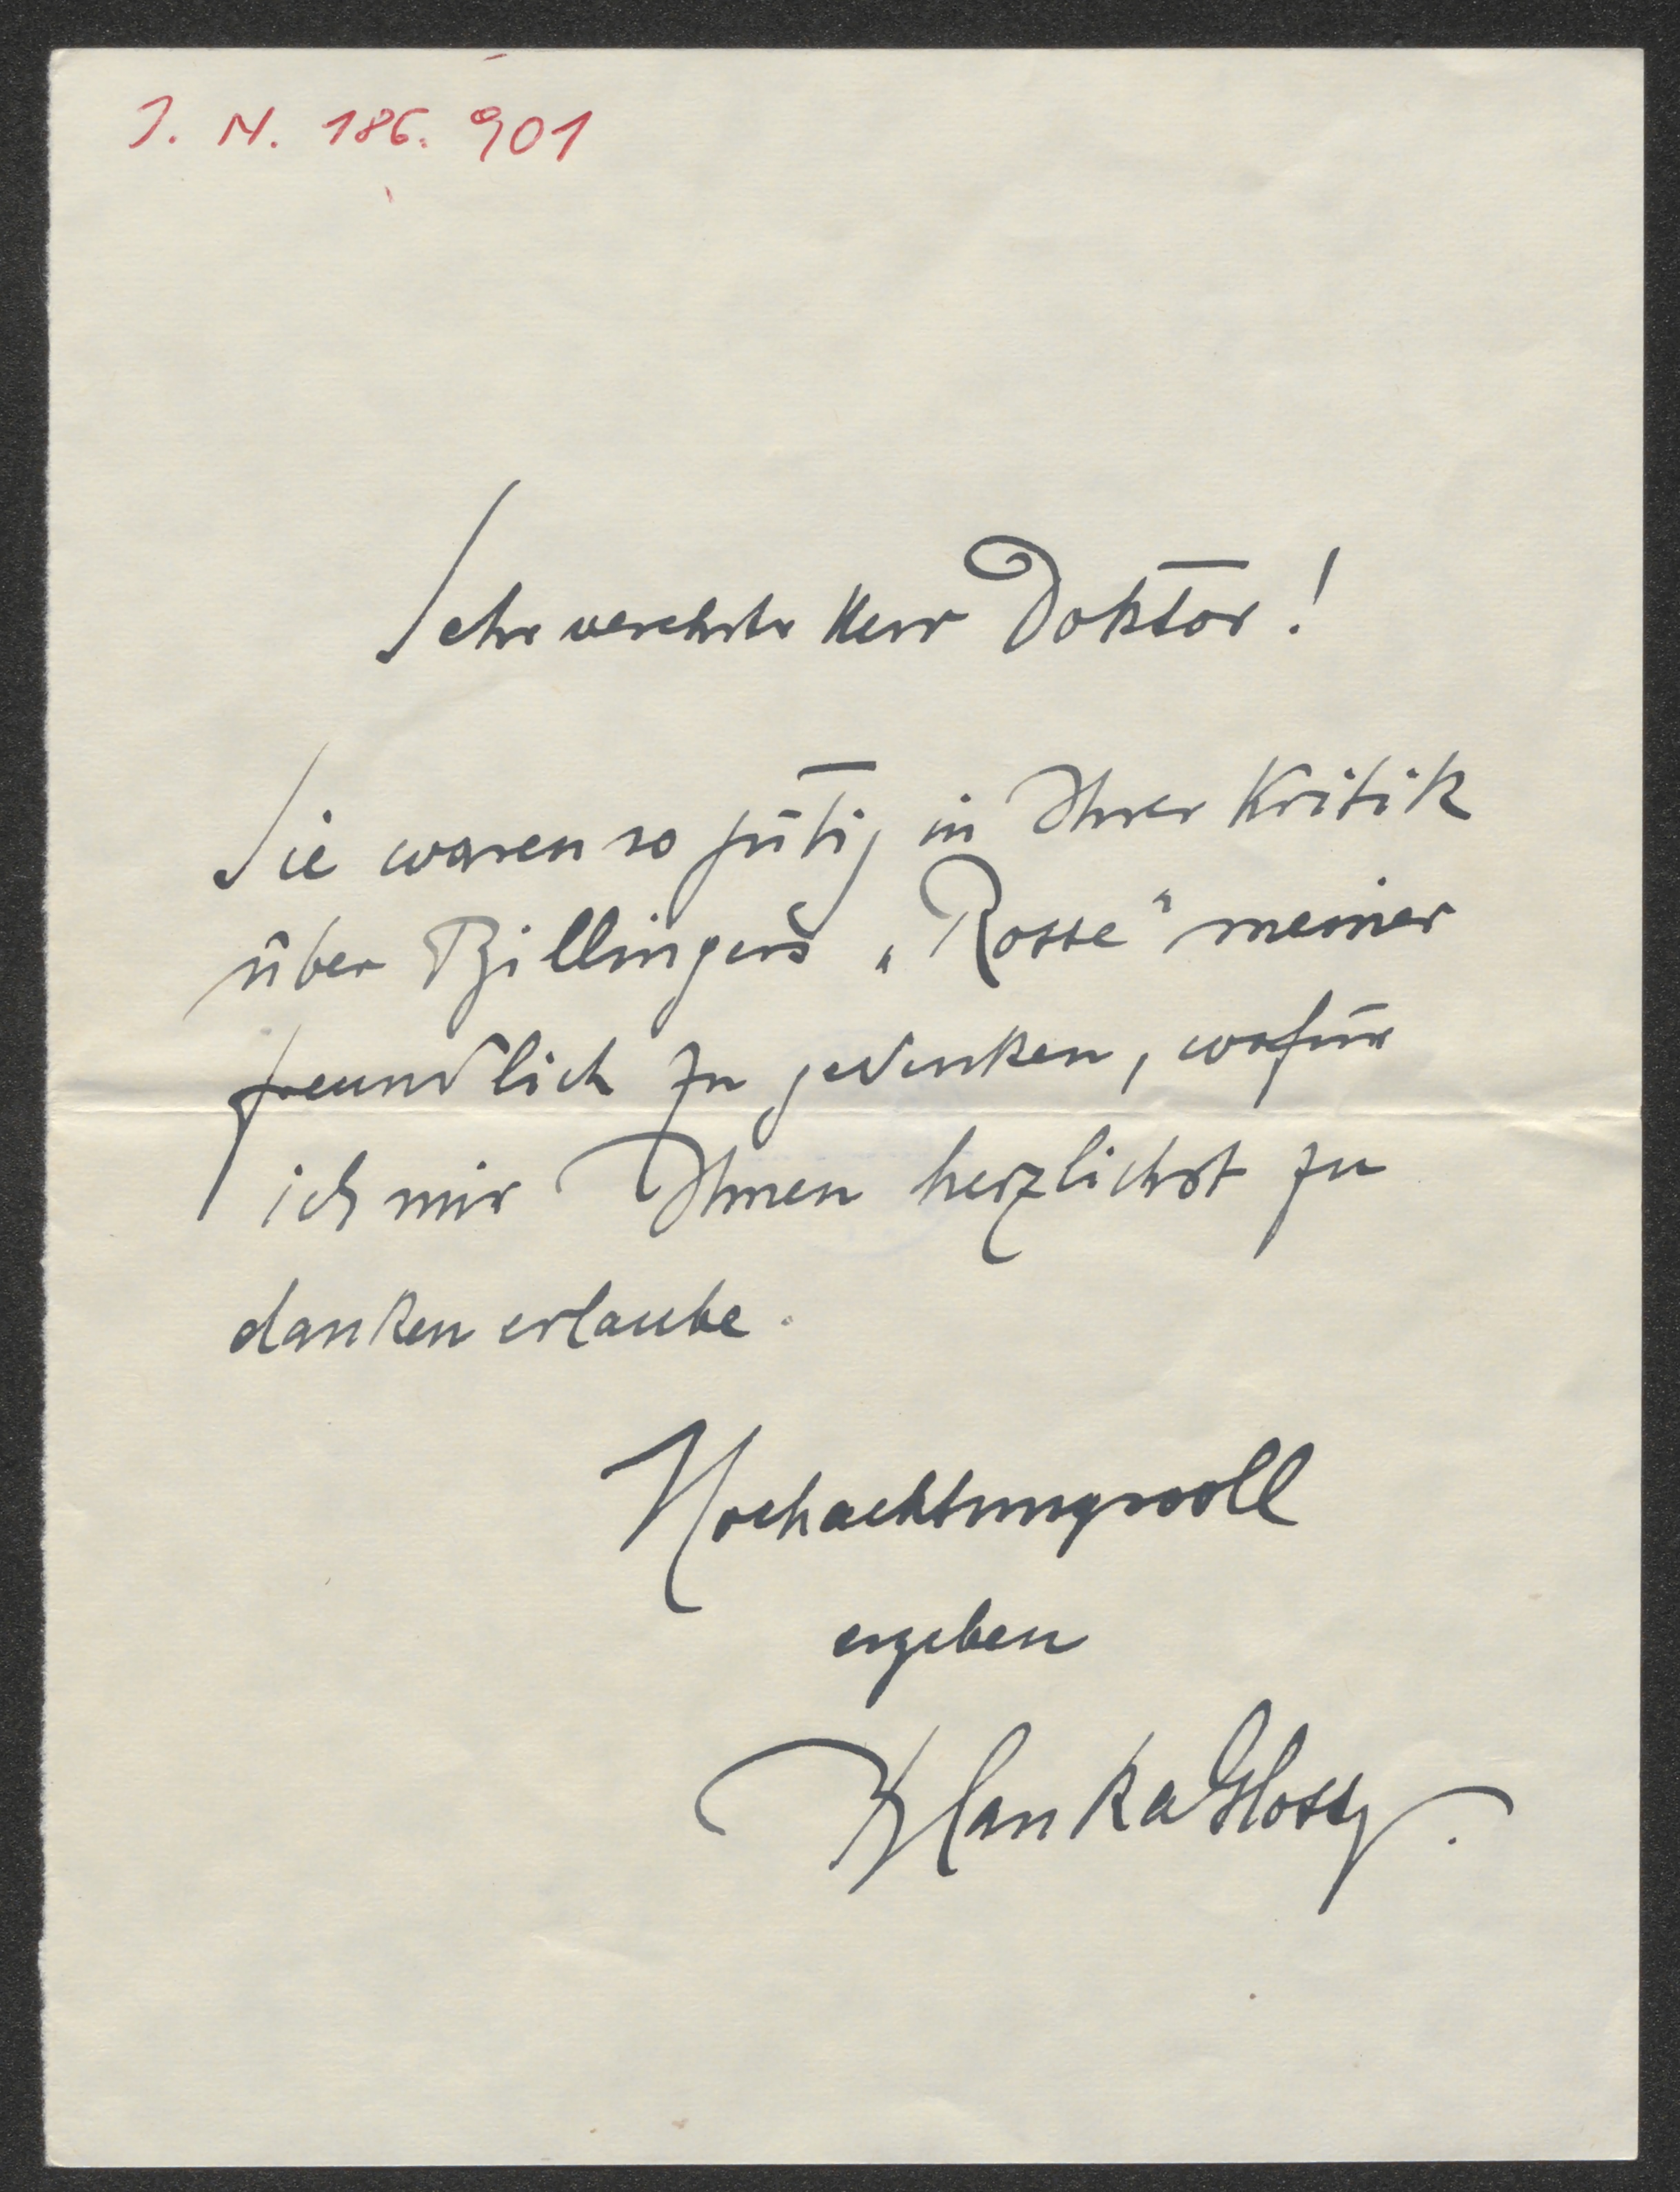 J. N. 186.901
Sehr verehrter Herr Doktor!
Sie waren so gütig in Ihrer Kritik
über Billingers „Rosse“ meiner
freundlich zu gedenken, wofür
ich mir Ihnen herzlichst zu
danken erlaube.
Hochachtungsvoll
ergeben
Blanka Glossy.